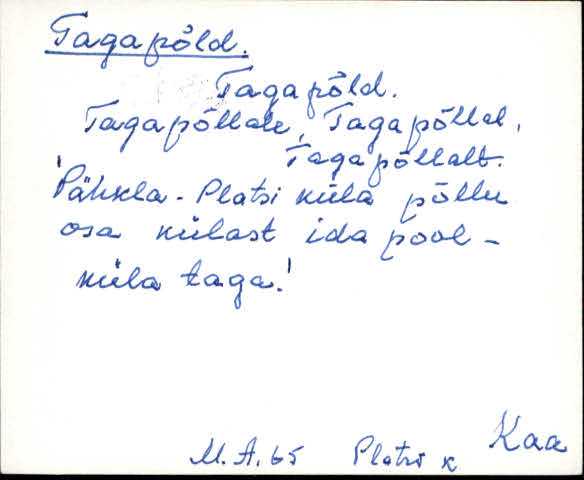 Tagapõld.
Tagapõld.
Tagapõllale, Tagapõllal,
Tagapõllalt.
'Pähkla - Platsi küla põllu
osa külast ida pool -
küla taga.'
M. A. 65 Platsi k Kaa